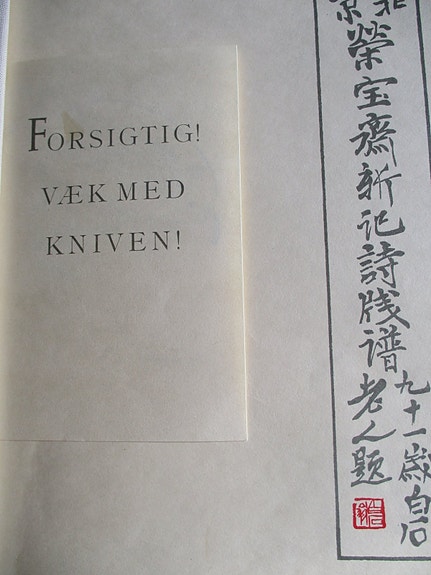 FORSIGTIG!
VÆK MED
KNIVEN!
北京榮宝齋新记詩牋谱
九十一歲白石老人题